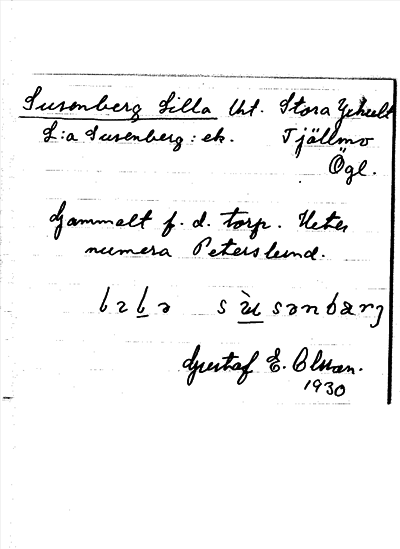 Susenberg Lilla Ut. Stora
L:a Susenberg: ek. Tjällmo
Ögl.
Gammalt f. d. torp. Heter
numera Peterslund.
Gustaf E. Olsson.
1930